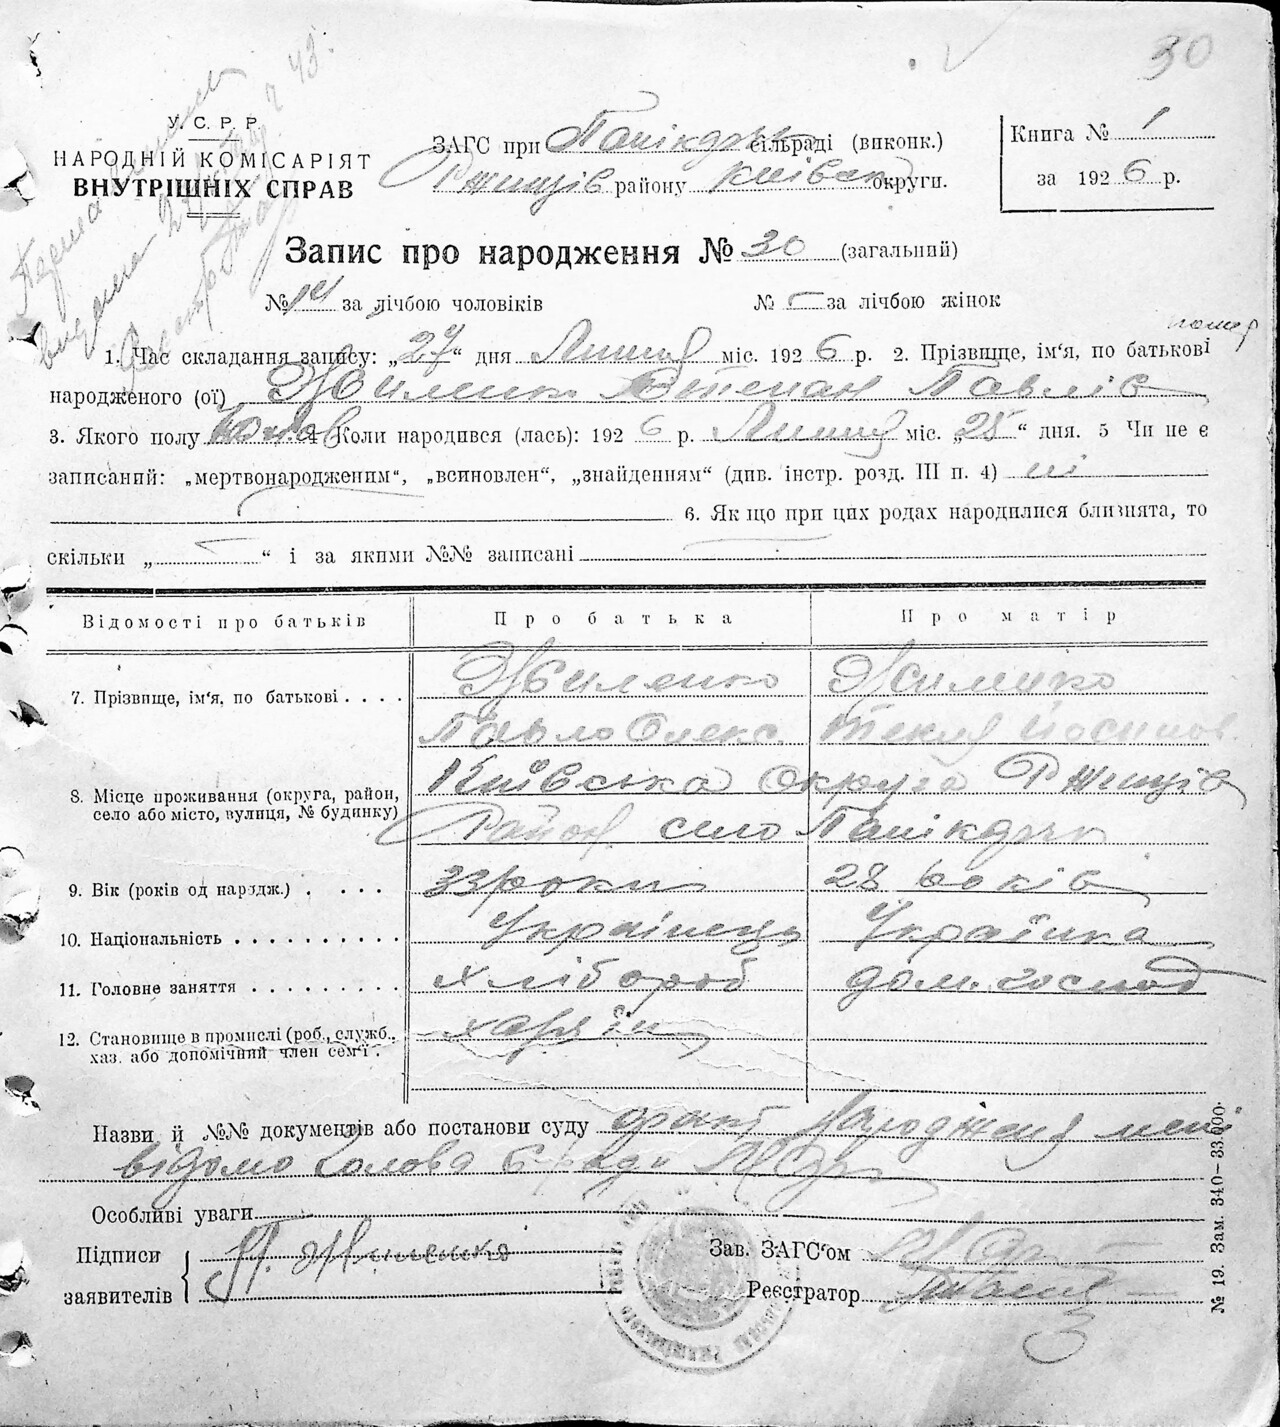 30
У. С. Р. Р.
НАРОДНІЙ КОМІСАРІЯТ
ВНУТРІШНІХ СПРАВ
ЗАГС при сільраді (виконк.)
Ржищів району Київськ округи.
Книга № 1
за 1926 р.
Запис про народження № 30 (загальний)
№ 14 за лічбою чоловіків № – за лічбою жінок
помер
1. Час складання запису: „27“ дня Липня міс. 1926 р. 2. Прізвище, ім'я, по батькові
народженого (ої) Жиленко Степан Павлів
3. Якого полу 4 Коли народився (лась): 1926 р. Липня міс. „25“ дня. 5 Чи не є
записаний: „мертвонародженим“, „всиновлен“, „знайденням“ (див. інстр. розд. III п. 4) ні
6. Якщо при цих родах народилися близнята, то
скільки „ “ і за якими №№ записані
Відомості про батьків Про батька Про матір
7. Прізвище, ім'я, по батькові Жиленко Жиленко
Павло Олекс. Текля Йосипов.
8. Місце проживання (округа, район, село або місто, вулиця, № будинку) Київська округа Ржищів
Район село
9. Вік (років од народж.) 33 роки 28 років
10. Національність Українець Українка
11. Головне заняття хлібороб дом. господ
12. Становище в промислі (роб., служб., хаз. або допомічний член сем'ї. хазяїн
Назви й №№ документів або постанови суду факт народження мені
відомо Голова
Особливі уваги
Підписи
заявителів П. Жиленко
Зав. ЗАГС'ом
Реєстратор
№ 19. Зам. 340–33.000.